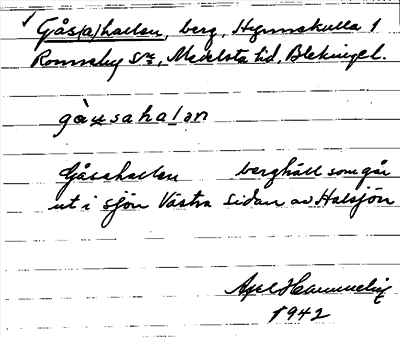 ✓ Gås(a)hallen, berg, Hyannekulla 1
Ronneby Sn:, Medelsta hd, Blekinge l.
gàusahalan
Gåsahallen berghäll som går
ut i sjön Västra Sidan av Halsjön
Axel Hammelin
1942